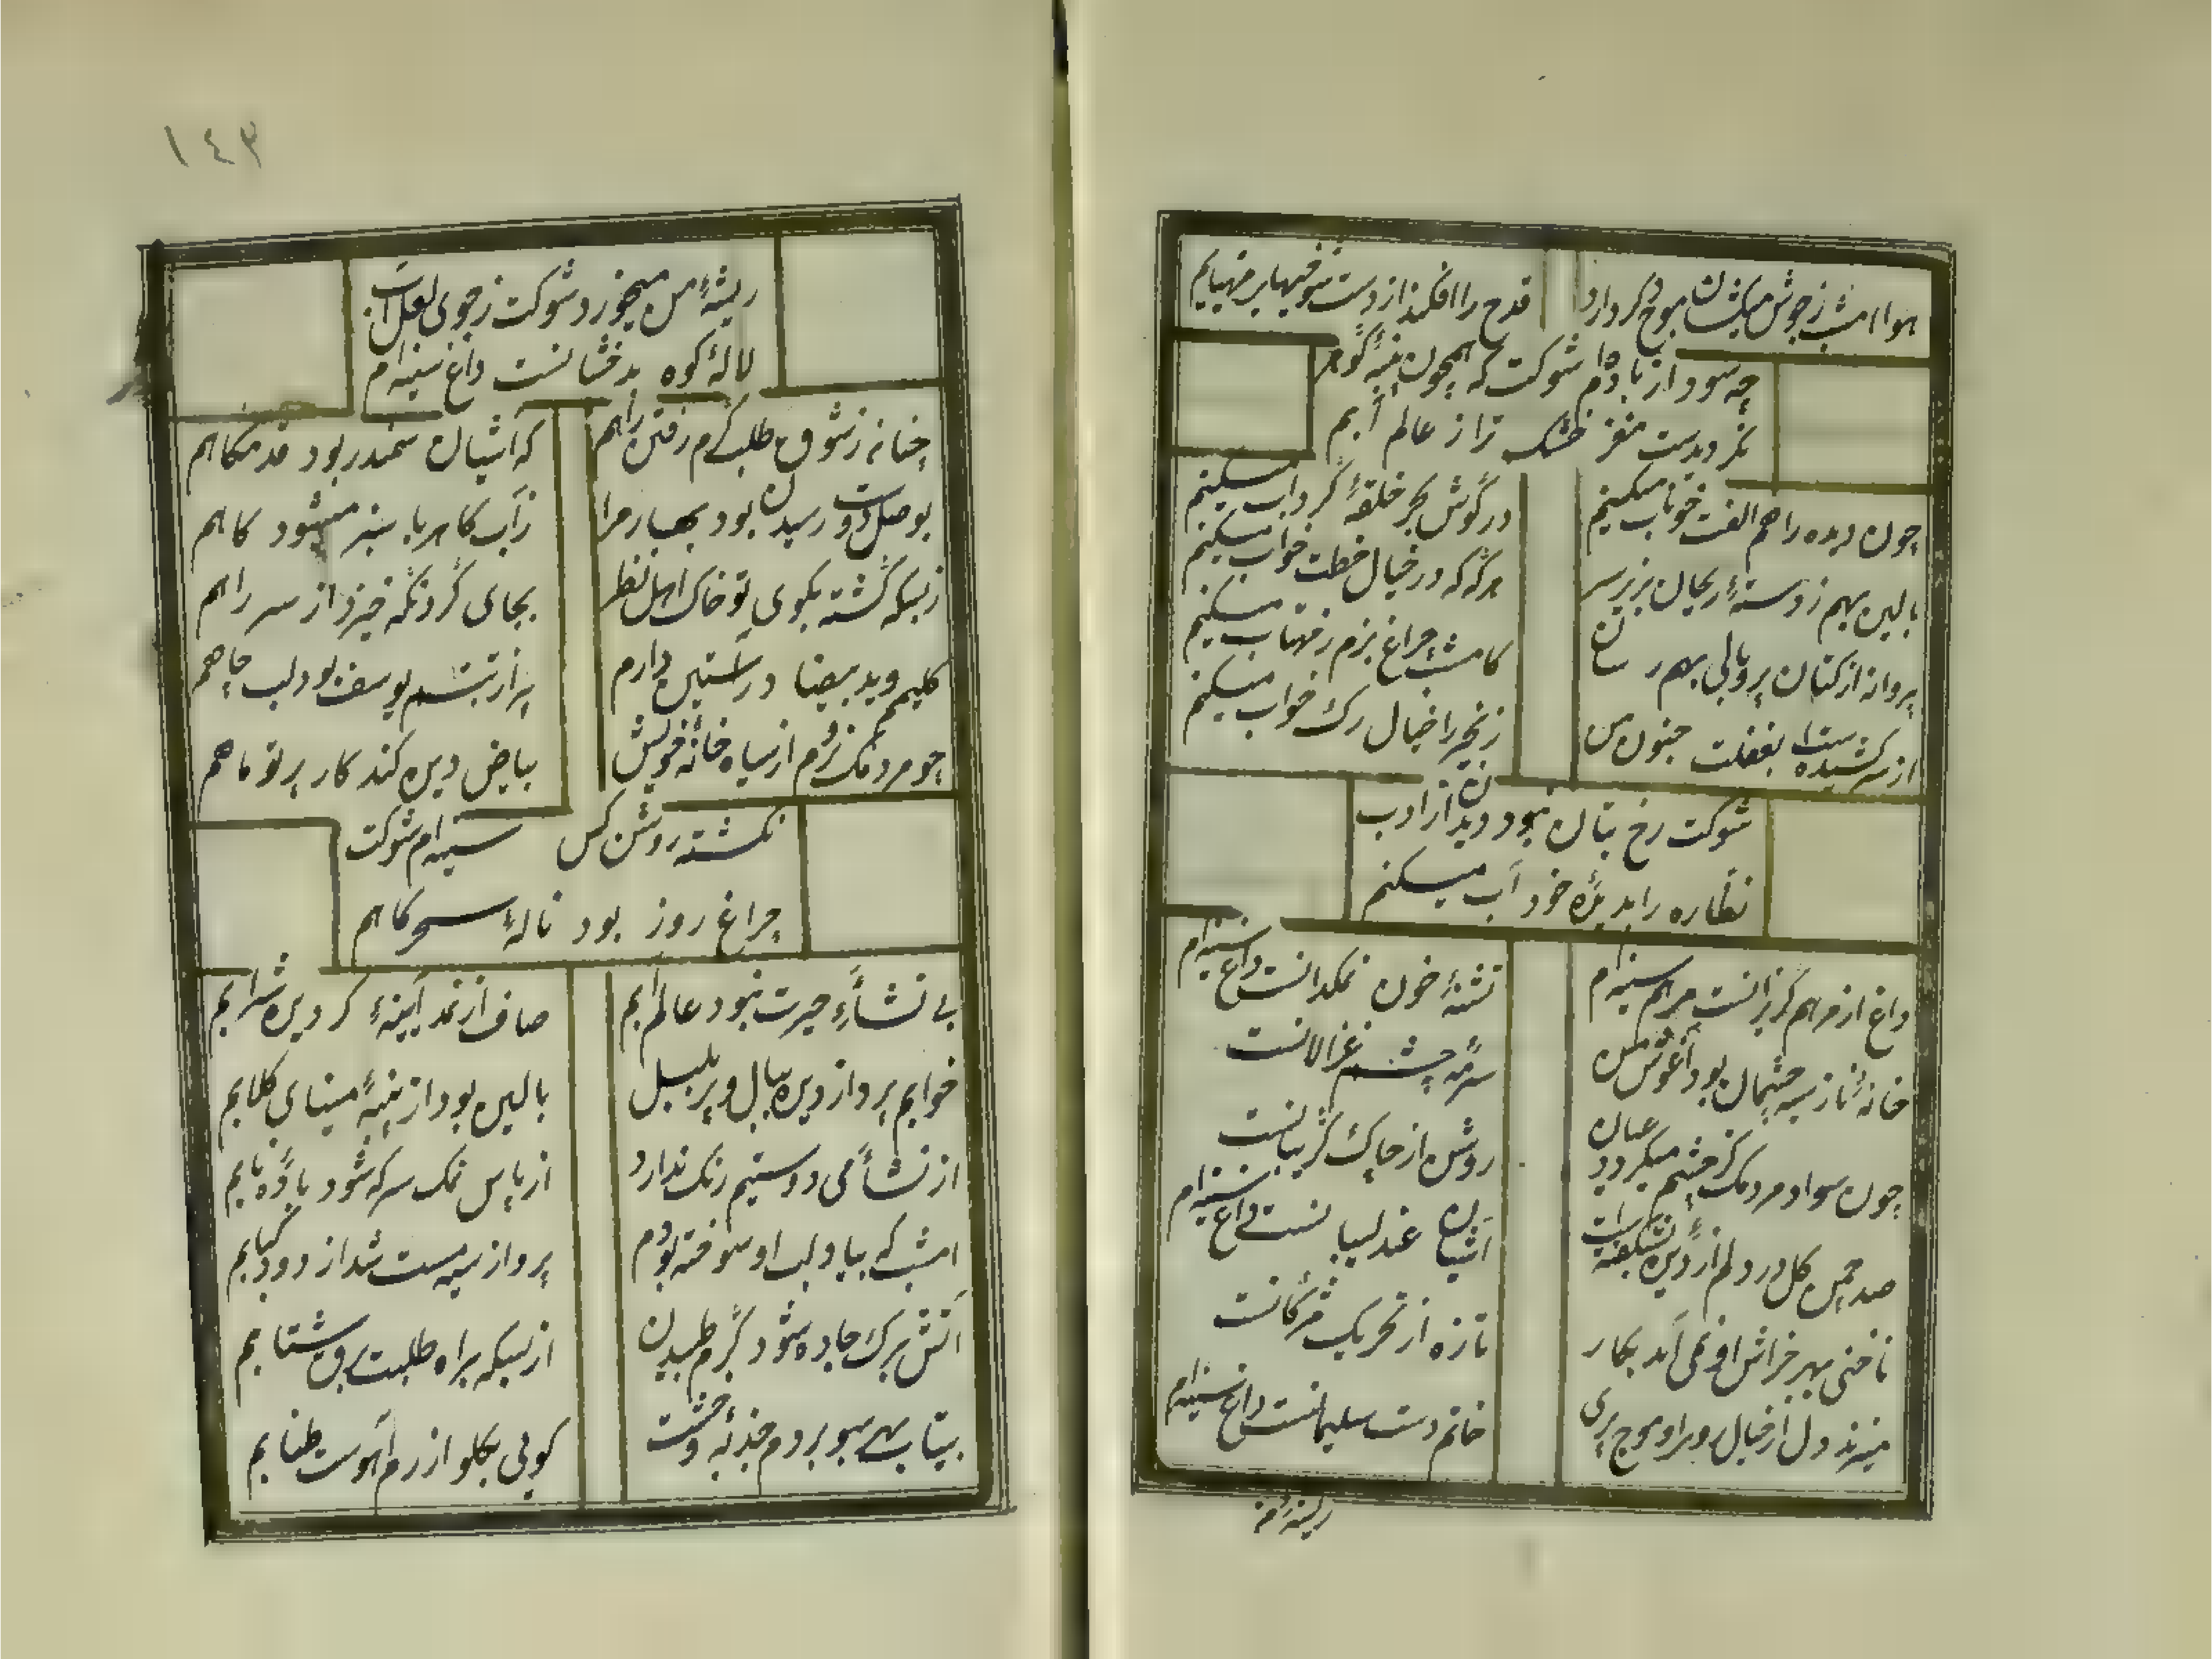 هوا امشب ز جوش میکشان موج دکر دارد
قدح را افکند از دست شوخیهای مهتابم
چه سود از باده‌ام شوکت که همچون پنبهٔ گوهر
نکردیدست مغز خشک تر از عالم آبم
چون دیده را بهم الفت خوناب میکنیم
در گوش بحر حلقهٔ گرداب میکنیم
بالین بهم ز دستهٔ ریحان بزیر سر
هرگه که در خیال خطت خواب میکنیم
پروانه از کتان پر و بالی بهم رسان
کامشب چراغ بزم ز مهتاب میکنیم
از سر کشیده است بغفلت جنون من
زنجیر را خیال رک خواب میکنیم
شوکت رخ بتان نبود دیدن از ادب
نظاره را بدیدهٔ خود آب میکنم
داغ از مرهم گریزانست مرهم سینه‌ام
تشنهٔ خون نمکدانست داغ سینه‌ام
خانهٔ ناز سیه چشمان بود آغوش من
سرمه چشم غزالانست
چون سواد مردمک کز چشم میکردد عیان
روشن از چاک گریبانست
صد چمن کل در دلم از دیدن نشکفته است
آشیان عندلیبانست داغ سینه‌ام
ناخنی بهر خراش او نمی آید بکار
تازه از تحریک مژگانست
میزند دل از خیال روی او موج پری
خاتم دست سلیمانست داغ سینه‌ام
ریشهٔ من
۱۴۳
ریشهٔ من میخورد شوکت ز جوی لعل آب
لالهٔ کوه بدخشانست داغ سینه‌ام
چنانه ز شوق طلب گرم رفتن راهم
که آشیان سمندر بود قدمکاهم
بوصل دوست رسیدن بود بهار مرا
ز آب کاهربا سبز میشود کاهم
ز بسکه گشته بکوی تو خاک اهل نظر
بجای گرد نگه خیزد از سر راهم
کلیمم و ید بیضا در آستین دارم
پر از تبسم یوسف بود لب چاهم
چو مردمک نروم از سیاه خانهٔ خویش
بیاض دیدن کند کار پرتو ماهم
نکشته روشن کس سینه‌ام شوکت
چراغ روز بود نالهٔ سحرکاهم
بی نشأهٔ حیرت نبود عالم آبم
صاف از نمد آیینهٔ کردیدن شرابم
خوابم پرواز دیدن ببال و پر بلبل
بالین بود از پنبهٔ مینای کلابم
از نشأ می دوستیم رنک ندارد
از پاس نمک سرکه شود بادهٔ نابم
امشب که بیاد لب او سوخته بودم
پرواز سیه مست شد از دود کبابم
آتش برک جاده شود گرم طپیدن
از بسکه براه طلبت برق شتابم
بیتاب بهر سو بردم جذبهٔ وحشت
کویی بکلو از رم آهوست طنابم